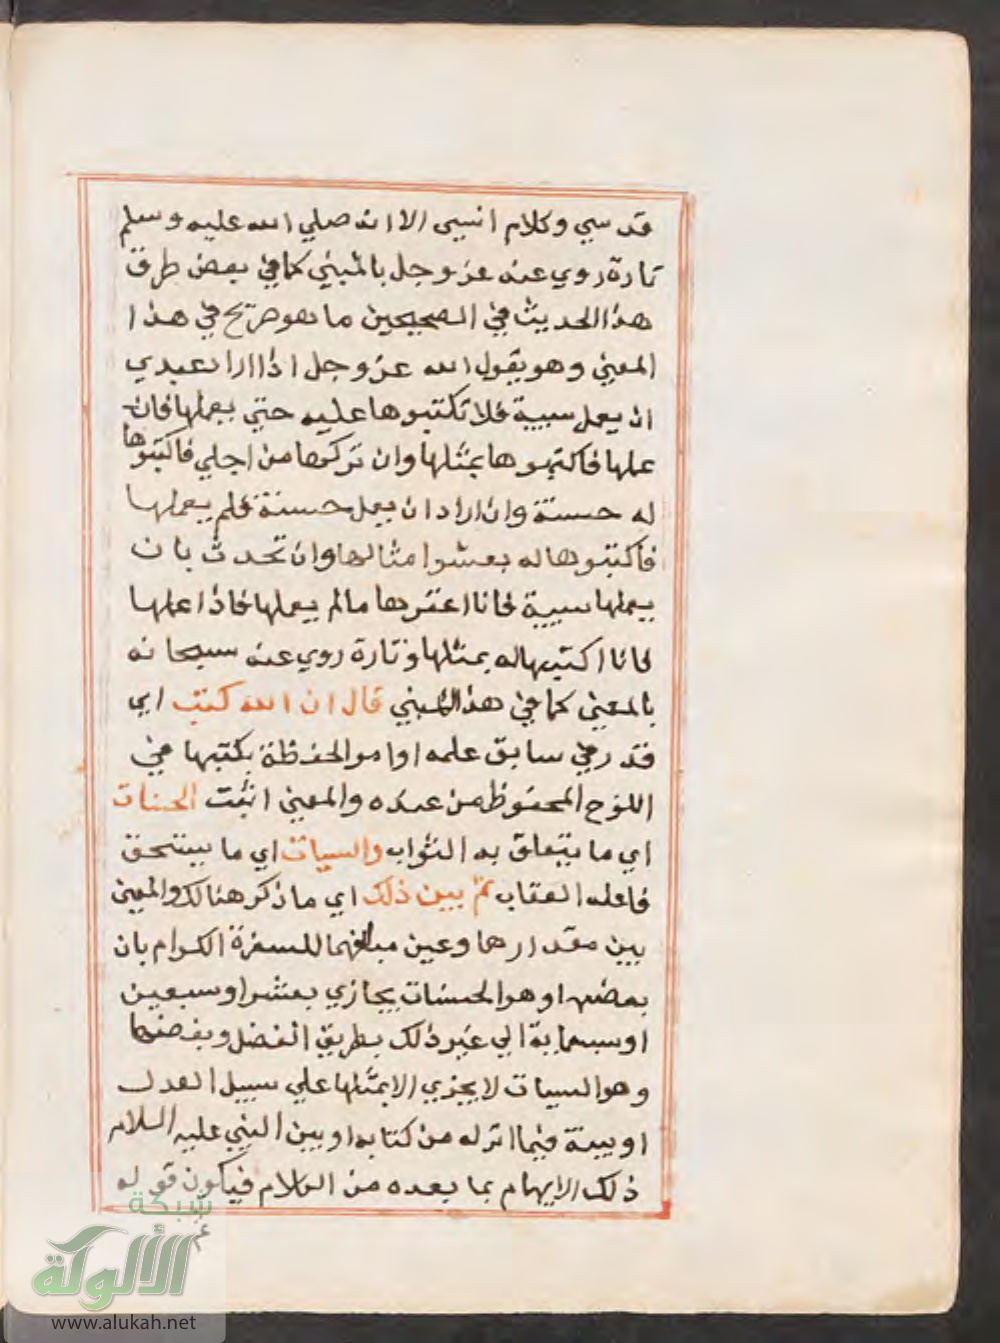 قدسي وكلام انسي الا انه صلي الله عليه وسلم
تارة روي عنه عز وجل بالمبني كما في بعض طرق
هذا الحديث في الصحيحين ما هو صريح في هذا
المعني وهو يقول الله عز وجل اذا اراد عبدي
ان يعمل سيية فلا تكتبوها عليه حتي يعملها فان
عملها فاكتبوها بمثلها وان تركها من اجلي فاكتبوها
له حسنة وان اراد ان يعمل حسنة فلم يعملها
فاكتبوها له بعشر امثالها وان تحدث بان
يعملها سيية فانا اغفرها مالم يعملها فاذا عملها
فانا اكتبها له بمثلها وتارة روي عنه سبحانه
بالمعني كما في هذا المبني قال ان الله كتب اي
قدر في سابق علمه او امر الحفظة بكتبها في
اللوح المحفوظ من عنده والمعني اثبت الحسنات
اي ما يتعلق به الثواب والسيات اي ما يستحق
فاعله العقاب ثم بين ذلك اي ما ذكر هنالك والمعني
بين مقدارها وعين مبلغهما للسفرة الكرام بان
بعضها وهو الحسنات يجازي بعشر او سبعين
او سبعماية الي غير ذلك بطريق الفضل وبعضها
وهو السيات لا يجزي الا بمثلها علي سبيل العدل
او بينة فيما انزله من كتابه او بين النبي عليه السلام
ذلك الابهام بما بعده من الكلام فيكون قوله
شبكة
الألوكة
www.alukah.net